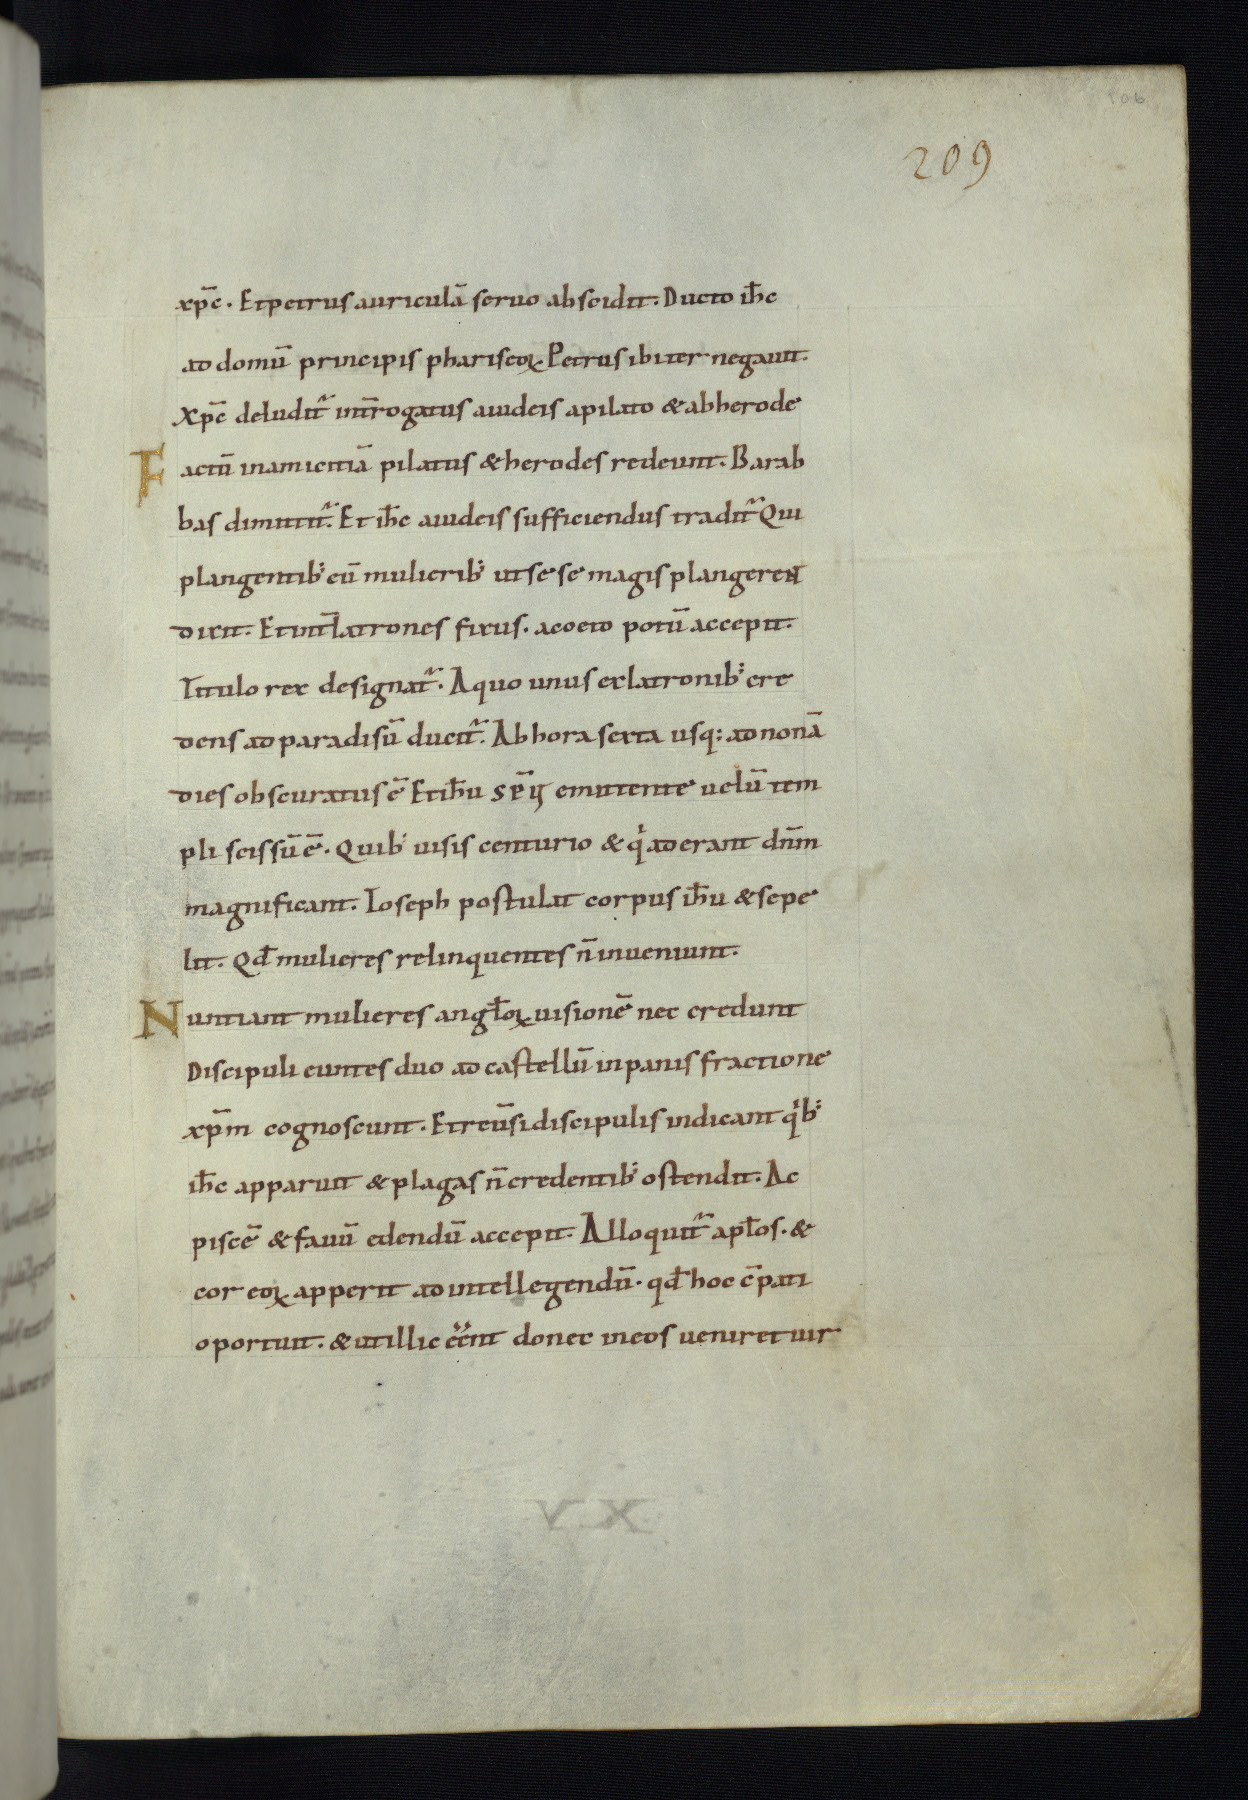 106
209
xp̄c. Et petrus auriculā seruo abscidit. Ducto ih̄c
ad domū principis phariseoꝝ. Petrus ibi ter negauit.
Xp̄c deludit᷑ int̄rogatus a iudeis a pilato & ab herode
Factū in amicitiā pilatus & herodes redeunt. Barab
bas dimittit᷑. Et ih̄c a iudeis sufficiendus tradit᷑ Qui
plangentib᷒ eū mulierib᷒ ut se se magis plangerent
dixit. Et int̄ latrones fixus. acoeto potū accepit.
Titulo rex designat᷑. A quo unus ex latronib᷒ cre
dens ad paradisū ducit᷑. Ab hora sexta usq; ad nonā
dies obscuratus ē Et ih̄u sp̄ꝫ emittente uelū tem
pli scissū ē. Quib᷒ uisis centurio & qͥ aderant dn̄m
magnificant. Ioseph postulat corpus ih̄u & sepe
lit. Qđ mulieres relinquentes n̄ inueniunt.
Nuntiant mulieres angl̄oꝝ uisionē nec credunt
Discipuli euntes duo ad castellū in panis fractione
xp̄m cognoscunt. Et reūsi discipulis indicant qͥb᷒
ih̄c apparuit & plagas n̄ credentib᷒ ostendit. Ac
piscē & fauū edendū accepit. Alloquit᷑ apl̄os. &
cor eoꝝ apperit ad intellegendū. qđ hoc c̄ pati
oportuit. & ut illic eēnt donec in eos ueniret uir